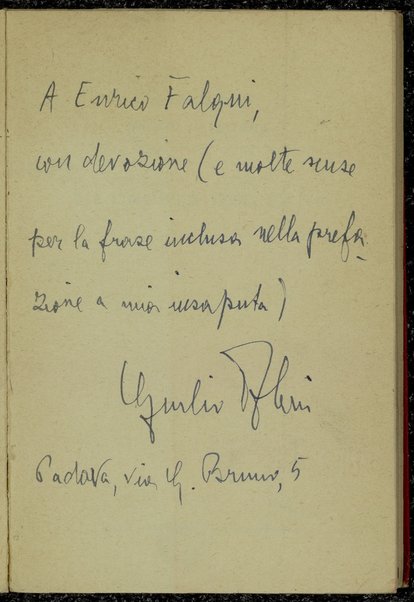 A Enrico Falqui,
con devozione (e molte scuse
per la frase inclusa nella prefa-
zione a mia insaputa)
Giulio
Padova, via G. Bruno, 5